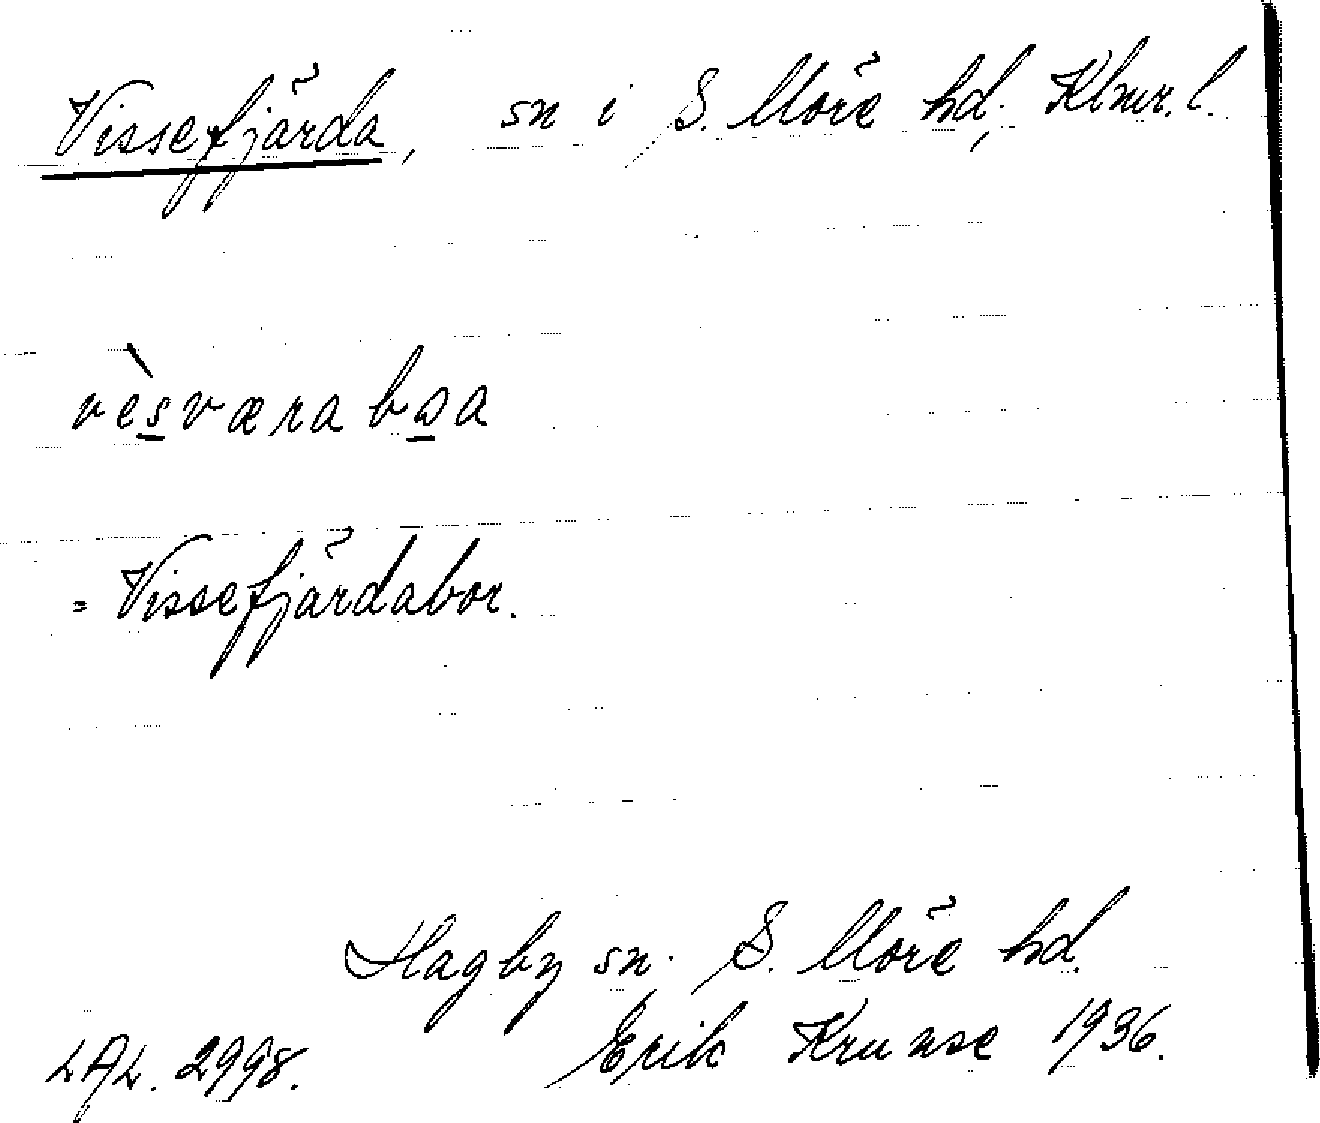 Vissefjärda, sn i S. Möre hd, Klmr. l.
vèsværabɷa
= Vissefjärdabor.
Hagby sn. S. Möre hd.
LAL. 2998. Erik Kruuse 1936.